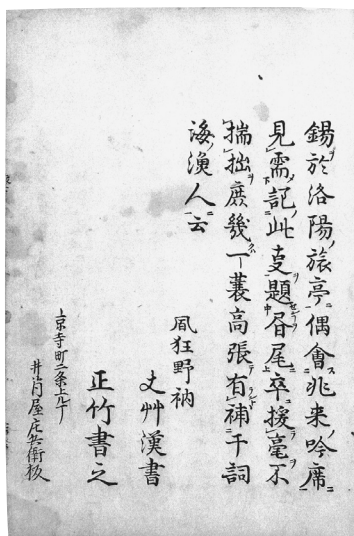 錫於洛陽旅亭偶會兆来吟席
見需記此叓題書尾卒援毫不
揣拙庶幾一蓑高張有補于詞
海漁人云
風狂野衲
丈艸漢書
正竹書之
京寺町二条上ル丁
井筒屋庄兵衛板